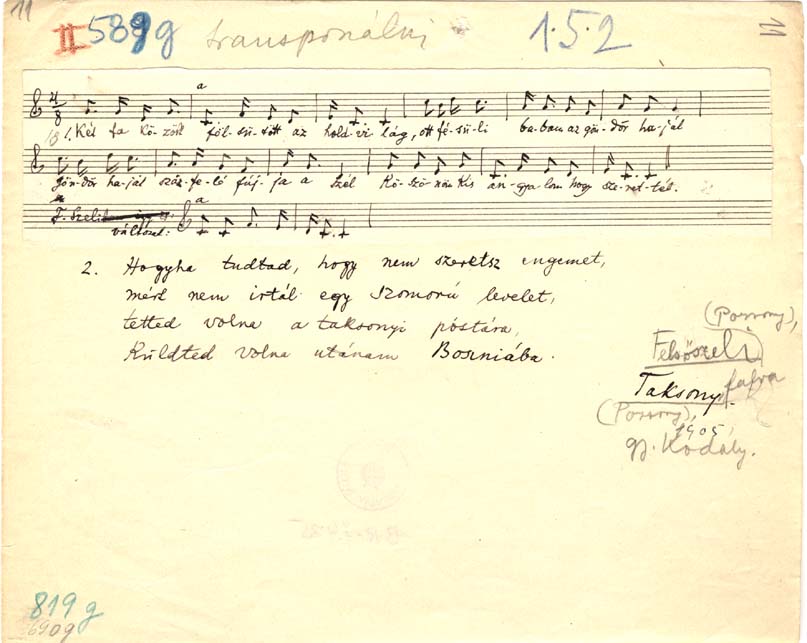 11
II 589g transponálni 1.5.2 11
a
1. Két fa kö-zött föl-sü-tött az hold-vi-lág, ott fé-sü-li ba-bam az gön-dör ha-ját
gön-dör ha-ját száz-fe-lé fúj-ja a szél Kö-szö-nöm kis an-gya-lom hogy sze-ret-tél.
F. Szeli
a
változat:
2. Hogyha tudtad, hogy nem szeretsz engemet,
mért nem irtál egy szomorú levelet,
tetted volna a taksonyi póstára,
Küldted volna utánam Boszniába.
(Pozsony),
Felsőszeli
Taksony
(Pozsony),
1905,
gy. Kodály.
819g
690g